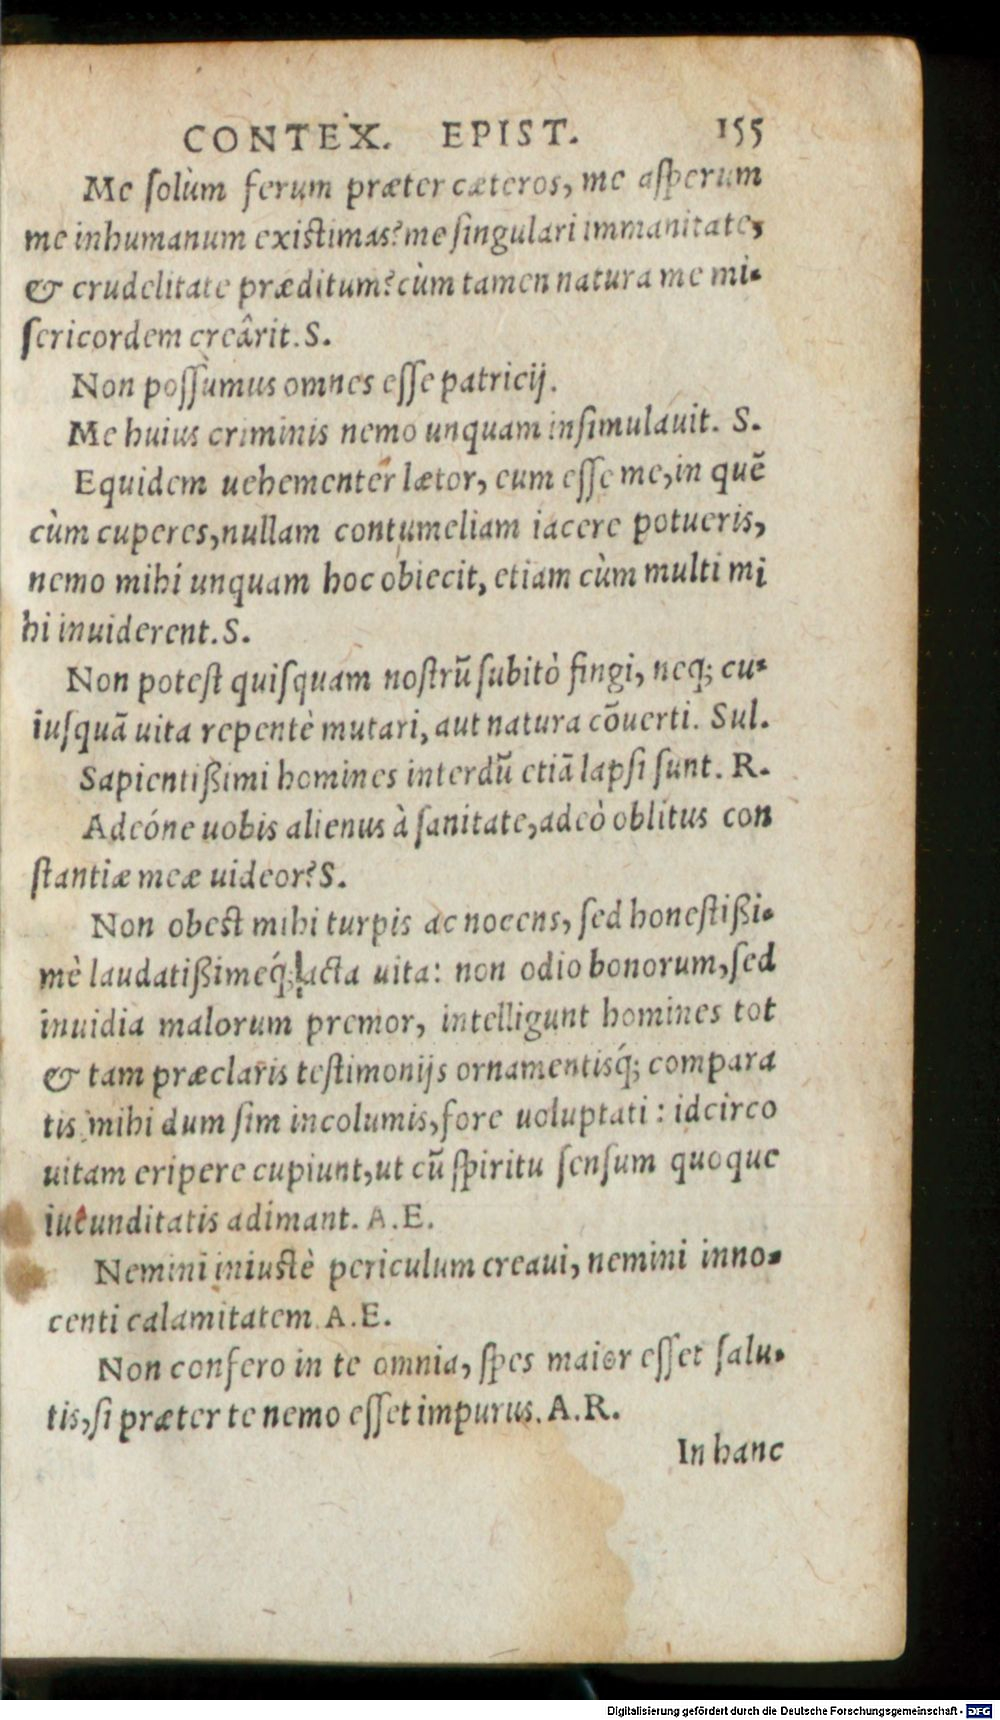 CONTEX. EPIST. 155
Me ſolùm ferum præter cæteros, me aſperum
me inhumanum existimas? me ſingulari immanitate,
& crudelitate præditum? cùm tamen natura me mi-
ſericordem creârit. S.
Non poſſumus omnes eſſe patricij.
Me huius criminis nemo unquam inſimulauit. S.
Equidem uehementer lætor, eum eſſe me, in quẽ
cùm cuperes, nullam contumeliam iacere potueris,
nemo mihi unquam hoc obiecit, etiam cùm multi mi
hi inuiderent. S.
Non poteſt quiſquam noſtrũ ſubitò fingi, neq; cu-
iuſquã uita repentè mutari, aut natura cõuerti. Sul.
Sapientißimi homines interdũ etiã lapſi ſunt. R.
Adeóne uobis alienus à ſanitate, adeò oblitus con
ſtantiæ meæ uideor? S.
Non obest mihi turpis ac nocens, ſed honeſtißi-
mè laudatißimeq́; acta uita: non odio bonorum, ſed
inuidia malorum premor, intelligunt homines tot
& tam præclaris teſtimonijs ornamentisq́; compara
tis mihi dum ſim incolumis, fore uoluptati: idcirco
uitam eripere cupiunt, ut cũ ſpiritu ſenſum quoque
iucunditatis adimant. A.E.
Nemini iniustè periculum creaui, nemini inno-
centi calamitatem A.E.
Non confero in te omnia, ſpes maior eſſet ſalu-
tis, ſi præter te nemo eſſet impurus. A.R.
In hanc
Digitalisierung gefördert durch die Deutsche Forschungsgemeinschaft - DFG